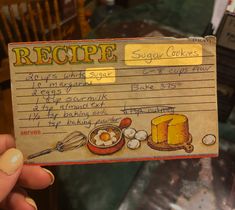 RECIPE Sugar Cookies
2 cups white Sugar 6-8 cups flour
1 c margarine Bake 375°
2 eggs
1 c sourmilk
2 tsp almond ext.
1½ tsp baking soda
1 tsp baking powder
serves